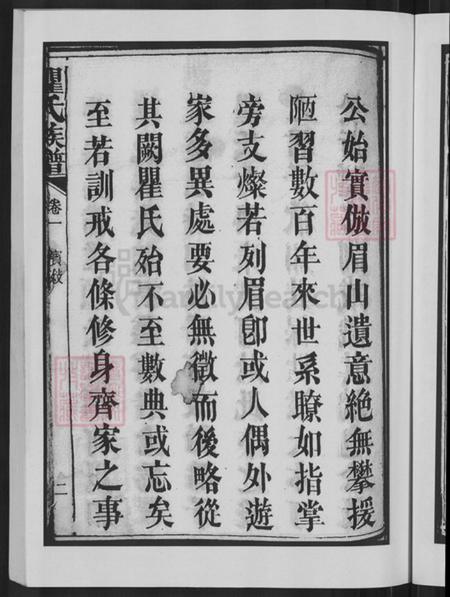 公始實倣眉山遺意絶無攀援
陋習數百年來世系瞭如指掌
旁支燦若列眉卽或人偶外遊
家多異處要必無徵而後略從
其闕瞿氏殆不至數典或忘矣
至若訓戒各條修身齊家之事
瞿氏族譜
卷一
二
FamilySearch